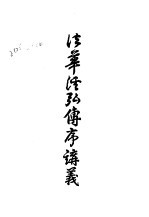 法華經弘傳序講義